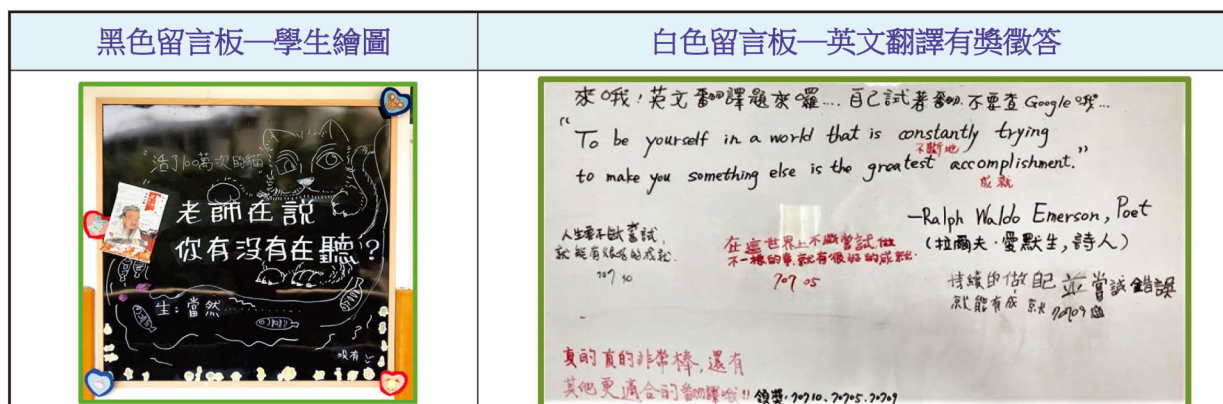 黑色留言板—學生繪圖
白色留言板—英文翻譯有獎徵答
活了100萬次的貓
老師在說
你有沒有在聽？
生：當然
沒有
來哦！英文翻譯題來囉....自己試著翻.不要查Google哦...
"To be yourself in a world that is constantly trying
不斷地
to make you something else is the greatest accomplishment."
成就
—Ralph Waldo Emerson, Poet
(拉爾夫·愛默生,詩人)
人生要不斷嘗試,
就能有很好的成就.
707 10
在這世界上不斷嘗試做
不一樣的事,就有很好的成就.
707 05
持續的做自己並嘗試錯誤
就能有成就 70709
真的真的非常棒,還有
其他更適合的翻譯哦!! 領獎:70710、70705、70709